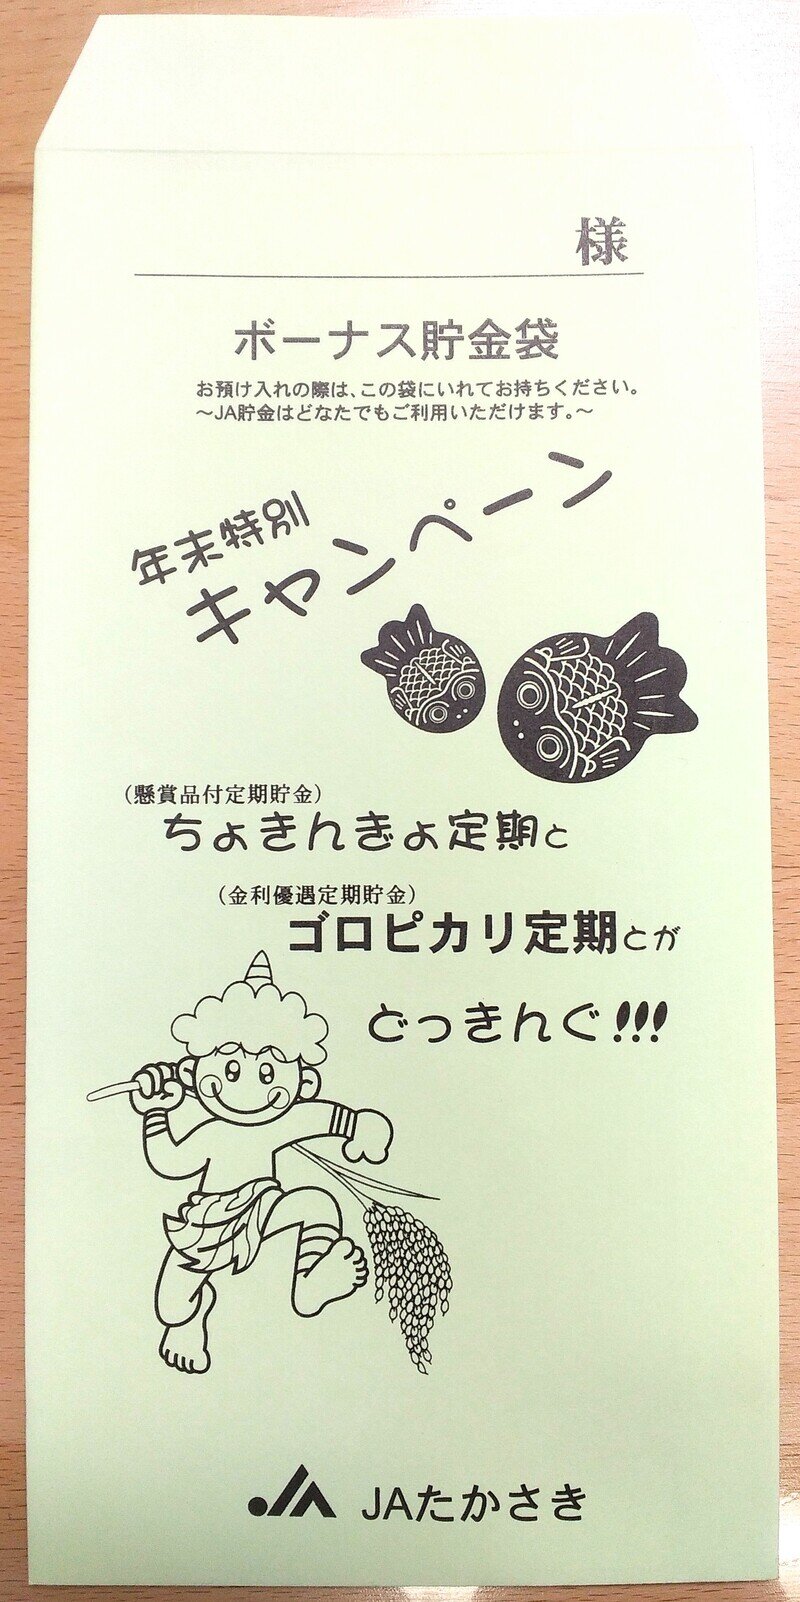 様
ボーナス貯金袋
お預け入れの際は、この袋にいれてお持ちください。
～JA貯金はどなたでもご利用いただけます。～
年末特別
キャンペーン
（懸賞品付定期貯金）
ちょきんぎょ定期と
（金利優遇定期貯金）
ゴロピカリ定期とが
どっきんぐ!!!
JA JAたかさき